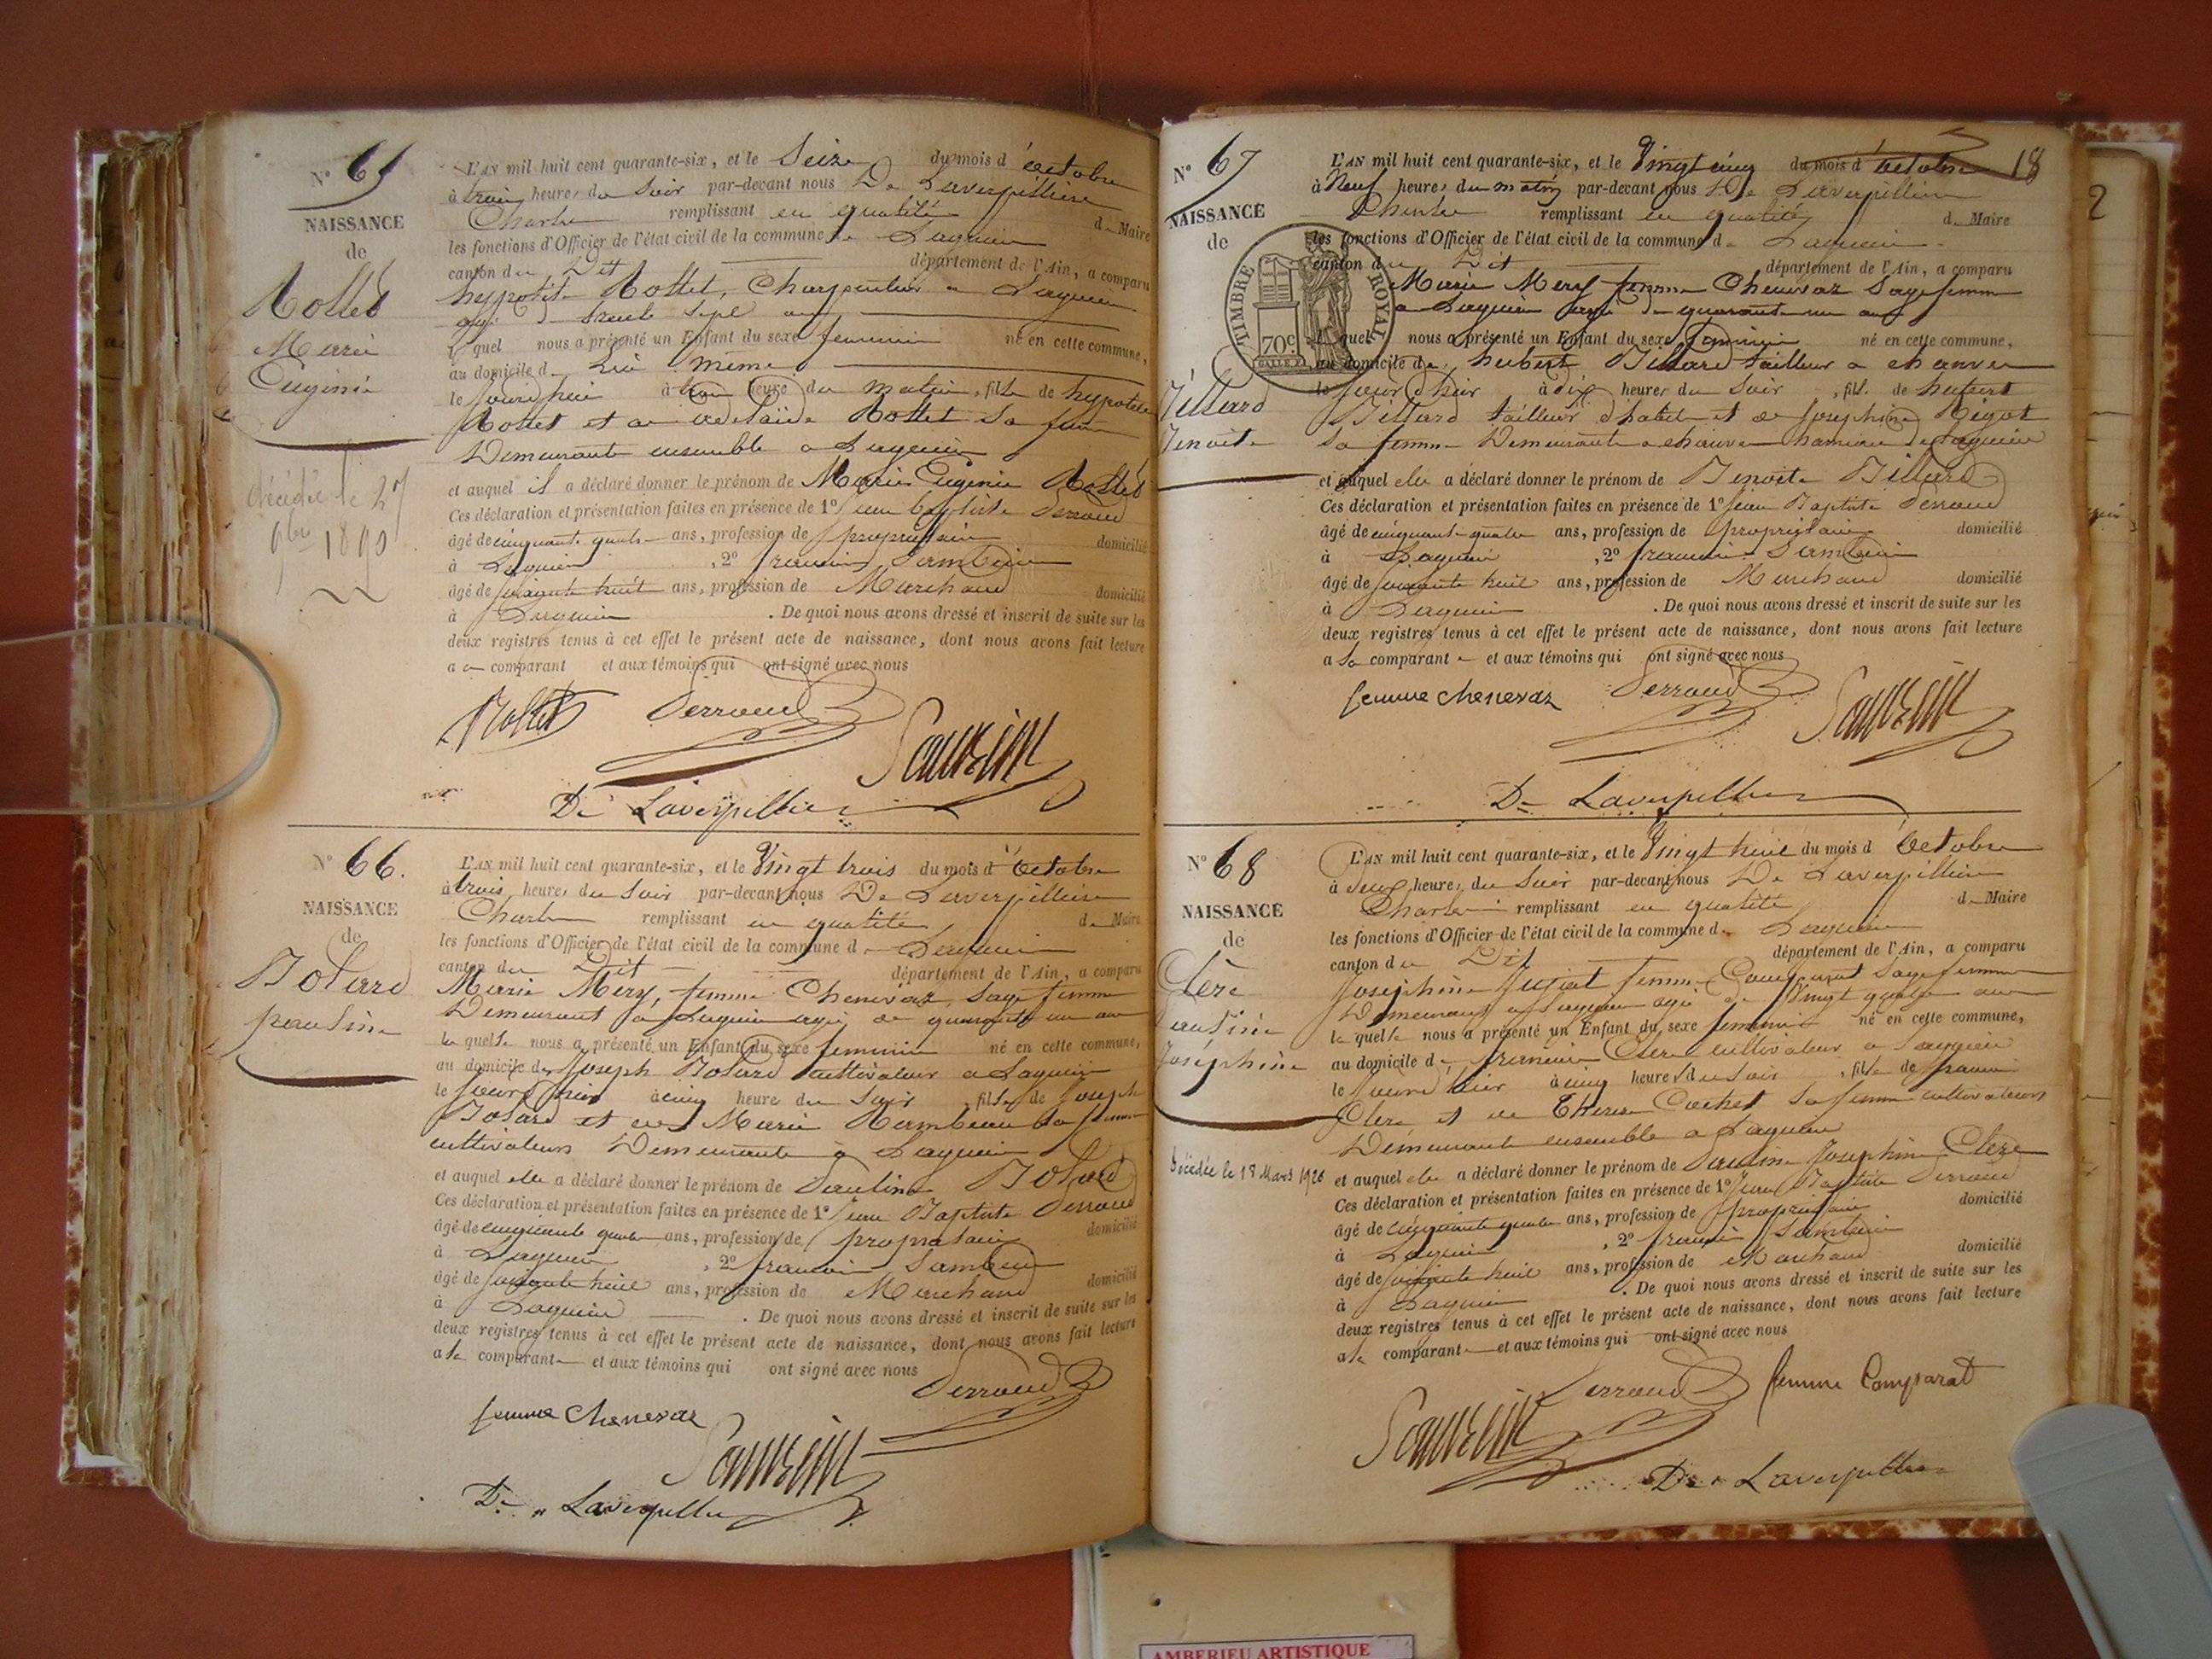 N° 65
NAISSANCE
de
Rollet
Marie
Eugénie
décédée le 27
9bre 1890
L'AN mil huit cent quarante-six, et le Seize du mois d'octobre
à trois heures du Soir par-devant nous De Laverpillière
Charles remplissant en qualité d Maire
les fonctions d'Officier de l'état civil de la commune de Lagnieu
canton du Dit département de l'Ain, a comparu
hypolite Rollet, Charpentier a Lagnieu
agé de trente sept ans
lequel nous a présenté un Enfant du sexe feminin né en cette commune,
au domicile de Lui même
le jourd'hui à heure du matin, fille de hypolite
Rollet et de adelaïde Rollet Sa femme
Demeurants ensemble a Lagnieu
et auquel il a déclaré donner le prénom de Marie Eugénie Rollet
Ces déclaration et présentation faites en présence de 1° Jean baptiste Perroud
âgé de cinquante quatre ans, profession de propriétaire domicilié
à Lagnieu , 2° francois
âgé de soixante huit ans, profession de Marchand domicilié
à Lagnieu . De quoi nous avons dressé et inscrit de suite sur les
deux registres tenus à cet effet le présent acte de naissance, dont nous avons fait lecture
a ce comparant et aux témoins qui ont signé avec nous
Rollet Perroud
De Laverpillière
N° 66.
NAISSANCE
de
Bolard
pauline
L'AN mil huit cent quarante-six, et le Vingt trois du mois d'Octobre
à trois heures du Soir par-devant nous De Laverpillière
Charles remplissant en qualité d Maire
les fonctions d'Officier de l'état civil de la commune d Lagnieu
canton du Dit département de l'Ain, a comparu
Marie Mery, femme Chenevaz, Sage femme
Demeurant a Lagnieu agée de quarante un an
la quelle nous a présenté un Enfant du sexe feminin né en cette commune,
au domicile de Joseph Bolard cultivateur a Lagnieu
le jourd'hier à cinq heure du Soir, fille de Joseph
Bolard et de Marie Sa femme
cultivateurs Demeurants à Lagnieu
et auquel elle a déclaré donner le prénom de Pauline Bolard
Ces déclaration et présentation faites en présence de 1° Jean Baptiste Perroud
âgé de cinquante quatre ans, profession de propriétaire domicilié
à Lagnieu , 2° francois
âgé de soixante huit ans, profession de Marchand domicilié
à Lagnieu . De quoi nous avons dressé et inscrit de suite sur les
deux registres tenus à cet effet le présent acte de naissance, dont nous avons fait lecture
a la comparante et aux témoins qui ont signé avec nous
Perroud
femme Chenevaz
De Laverpillière
18
N° 67
NAISSANCE
de
Billard
Benoite
TIMBRE ROYAL
70c
L'AN mil huit cent quarante-six, et le Vingt cinq du mois d'Octobre
à Neuf heures du matin par-devant nous De Laverpillière
Charles remplissant en qualité d Maire
les fonctions d'Officier de l'état civil de la commune d Lagnieu
canton du Dit département de l'Ain, a comparu
Marie Mery femme Chenevaz Sage femme
a Lagnieu agée de quarante un ans
la quelle nous a présenté un Enfant du sexe feminin né en cette commune,
au domicile de hubert Billard tailleur a
le jour d'hier à dix heures du Soir, fille de hubert
Billard tailleur d'habit et de Josephine
Sa femme Demeurants a hameau de Lagnieu
et auquel elle a déclaré donner le prénom de Benoite Billard
Ces déclaration et présentation faites en présence de 1° Jean Baptiste Perroud
âgé de cinquante-quatre ans, profession de propriétaire domicilié
à Lagnieu , 2° francois
âgé de soixante huit ans, profession de Marchand domicilié
à Lagnieu . De quoi nous avons dressé et inscrit de suite sur les
deux registres tenus à cet effet le présent acte de naissance, dont nous avons fait lecture
a la comparante et aux témoins qui ont signé avec nous
femme chenevaz Perroud
De Laverpillière
N° 68
NAISSANCE
de
Clerc
Pauline
Joséphine
Décédée le 18 Mars 1926
L'AN mil huit cent quarante-six, et le Vingt huit du mois d'Octobre
à Deux heures du Soir par-devant nous De Laverpillière
Charles remplissant en qualité d Maire
les fonctions d'Officier de l'état civil de la commune d Lagnieu
canton du Dit département de l'Ain, a comparu
Joséphine femme Comparat Sage femme
Demeurant a Lagnieu agée de Vingt quatre ans
la quelle nous a présenté un Enfant du sexe feminin né en cette commune,
au domicile de francois Clerc cultivateur a Lagnieu
le jourd'hier à cinq heures du Soir, fille de francois
Clerc et de Therese Cochet Sa femme cultivateurs
Demeurants ensemble a Lagnieu
et auquel elle a déclaré donner le prénom de Pauline Josephine Clerc
Ces déclaration et présentation faites en présence de 1° Jean Baptiste Perroud
âgé de cinquante quatre ans, profession de propriétaire domicilié
à Lagnieu , 2° francois
âgé de soixante huit ans, profession de Marchand domicilié
à Lagnieu . De quoi nous avons dressé et inscrit de suite sur les
deux registres tenus à cet effet le présent acte de naissance, dont nous avons fait lecture
a la comparante et aux témoins qui ont signé avec nous
Perroud femme Comparat
De Laverpillière
2
AMBERIEU ARTISTIQUE